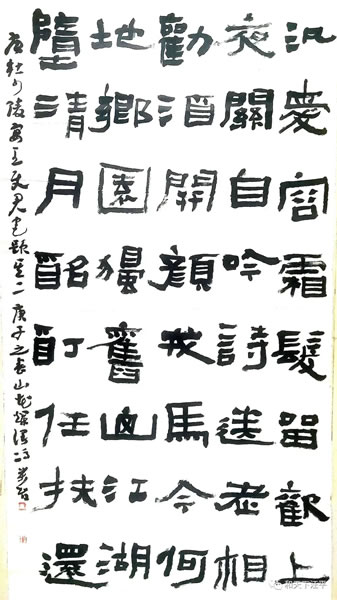 汎愛容霜髮留歡上
夜關自吟詩送老相
勸酒開顏戎馬今何
地鄉園獨舊山江湖
墮清月酩酊任扶還
唐杜少陵宴王使君宅題其二庚子之春山